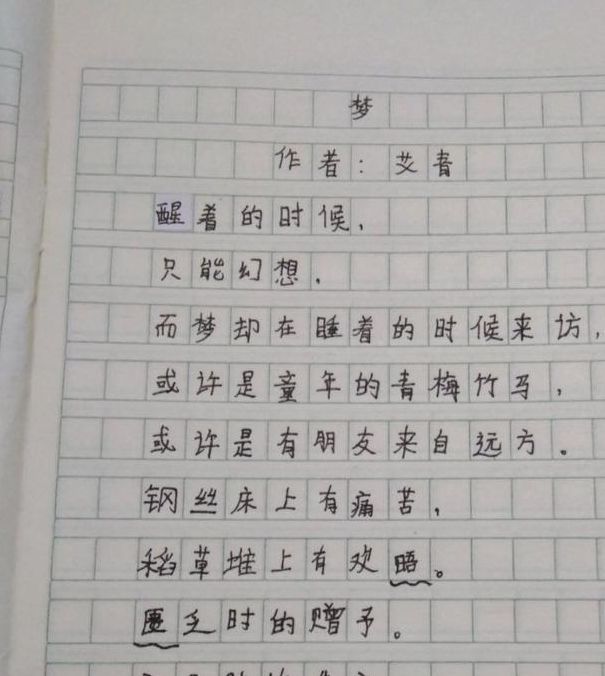 梦
作者：艾青
醒着的时候，
只能幻想．
而梦却在睡着的时候来访，
或许是童年的青梅竹马，
或许是有朋友来自远方。
钢丝床上有痛苦，
稻草堆上有欢晤。
匮乏时的赠予。